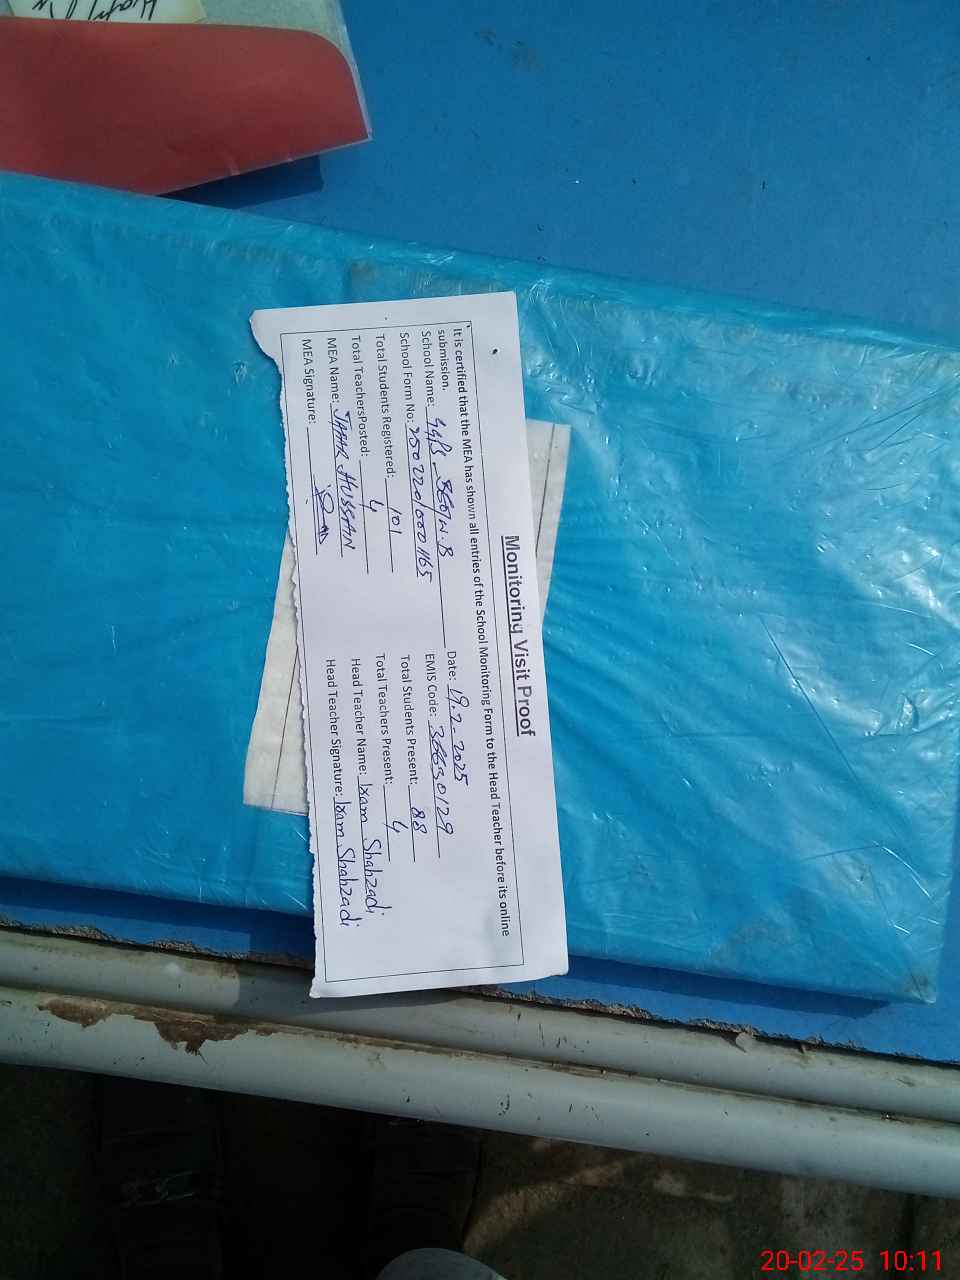 Monitoring Visit Proof
It is certified that the MEA has shown all entries of the School Monitoring Form to the Head Teacher before its online
submission.
School Name: Date: 19.2-2025
School Form No: 250220/0001165 EMIS Code: 36630129
Total Students Registered: 101 Total Students Present: 88
Total TeachersPosted: 4 Total Teachers Present: 4
MEA Name: JAFAR HUSSAIN Head Teacher Name: Iram Shahzadi
MEA Signature: Head Teacher Signature: Iram Shahzadi
20-02-25 10:11